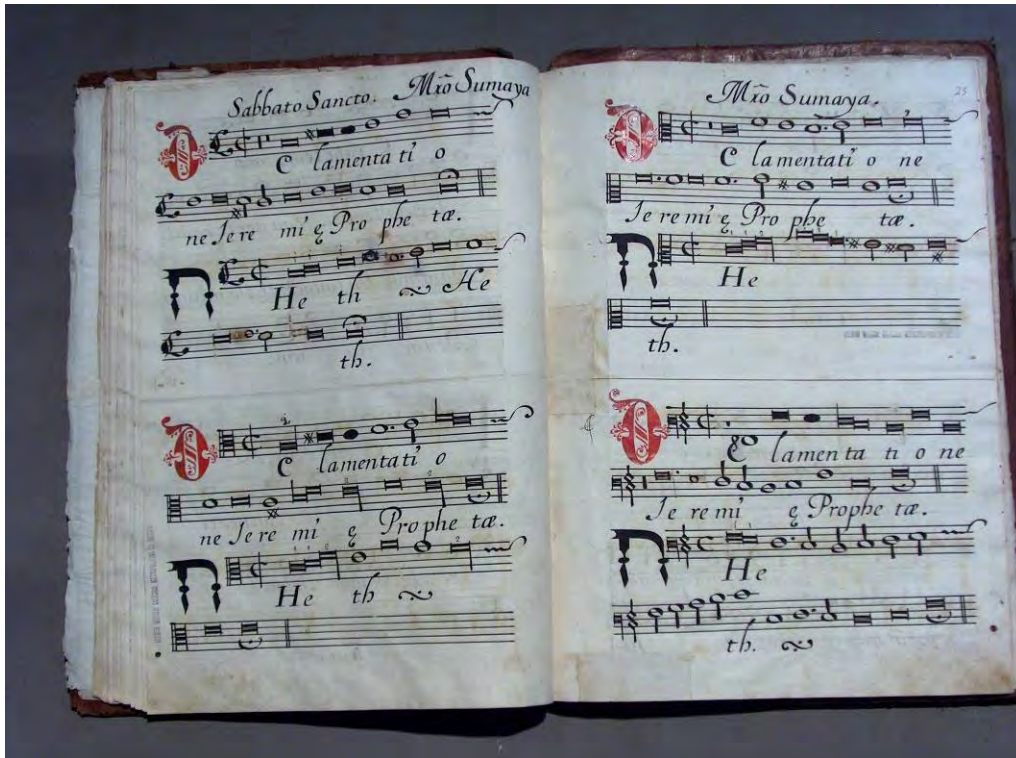 Sabbato Sancto. Mr̃o Sumaya
De lamentati o
ne Ie re mi ę Pro phe tæ.
ח He th He
th.
De lamentati o
ne Ie re mi ę Prophe tæ.
ח He th
Mr̃o Sumaya. 25
De lamentati o ne
Ie re mi ę Pro phe tæ.
ח He
th.
De lamen ta ti o ne
Ie re mi ę Prophe tæ.
ח He
th.